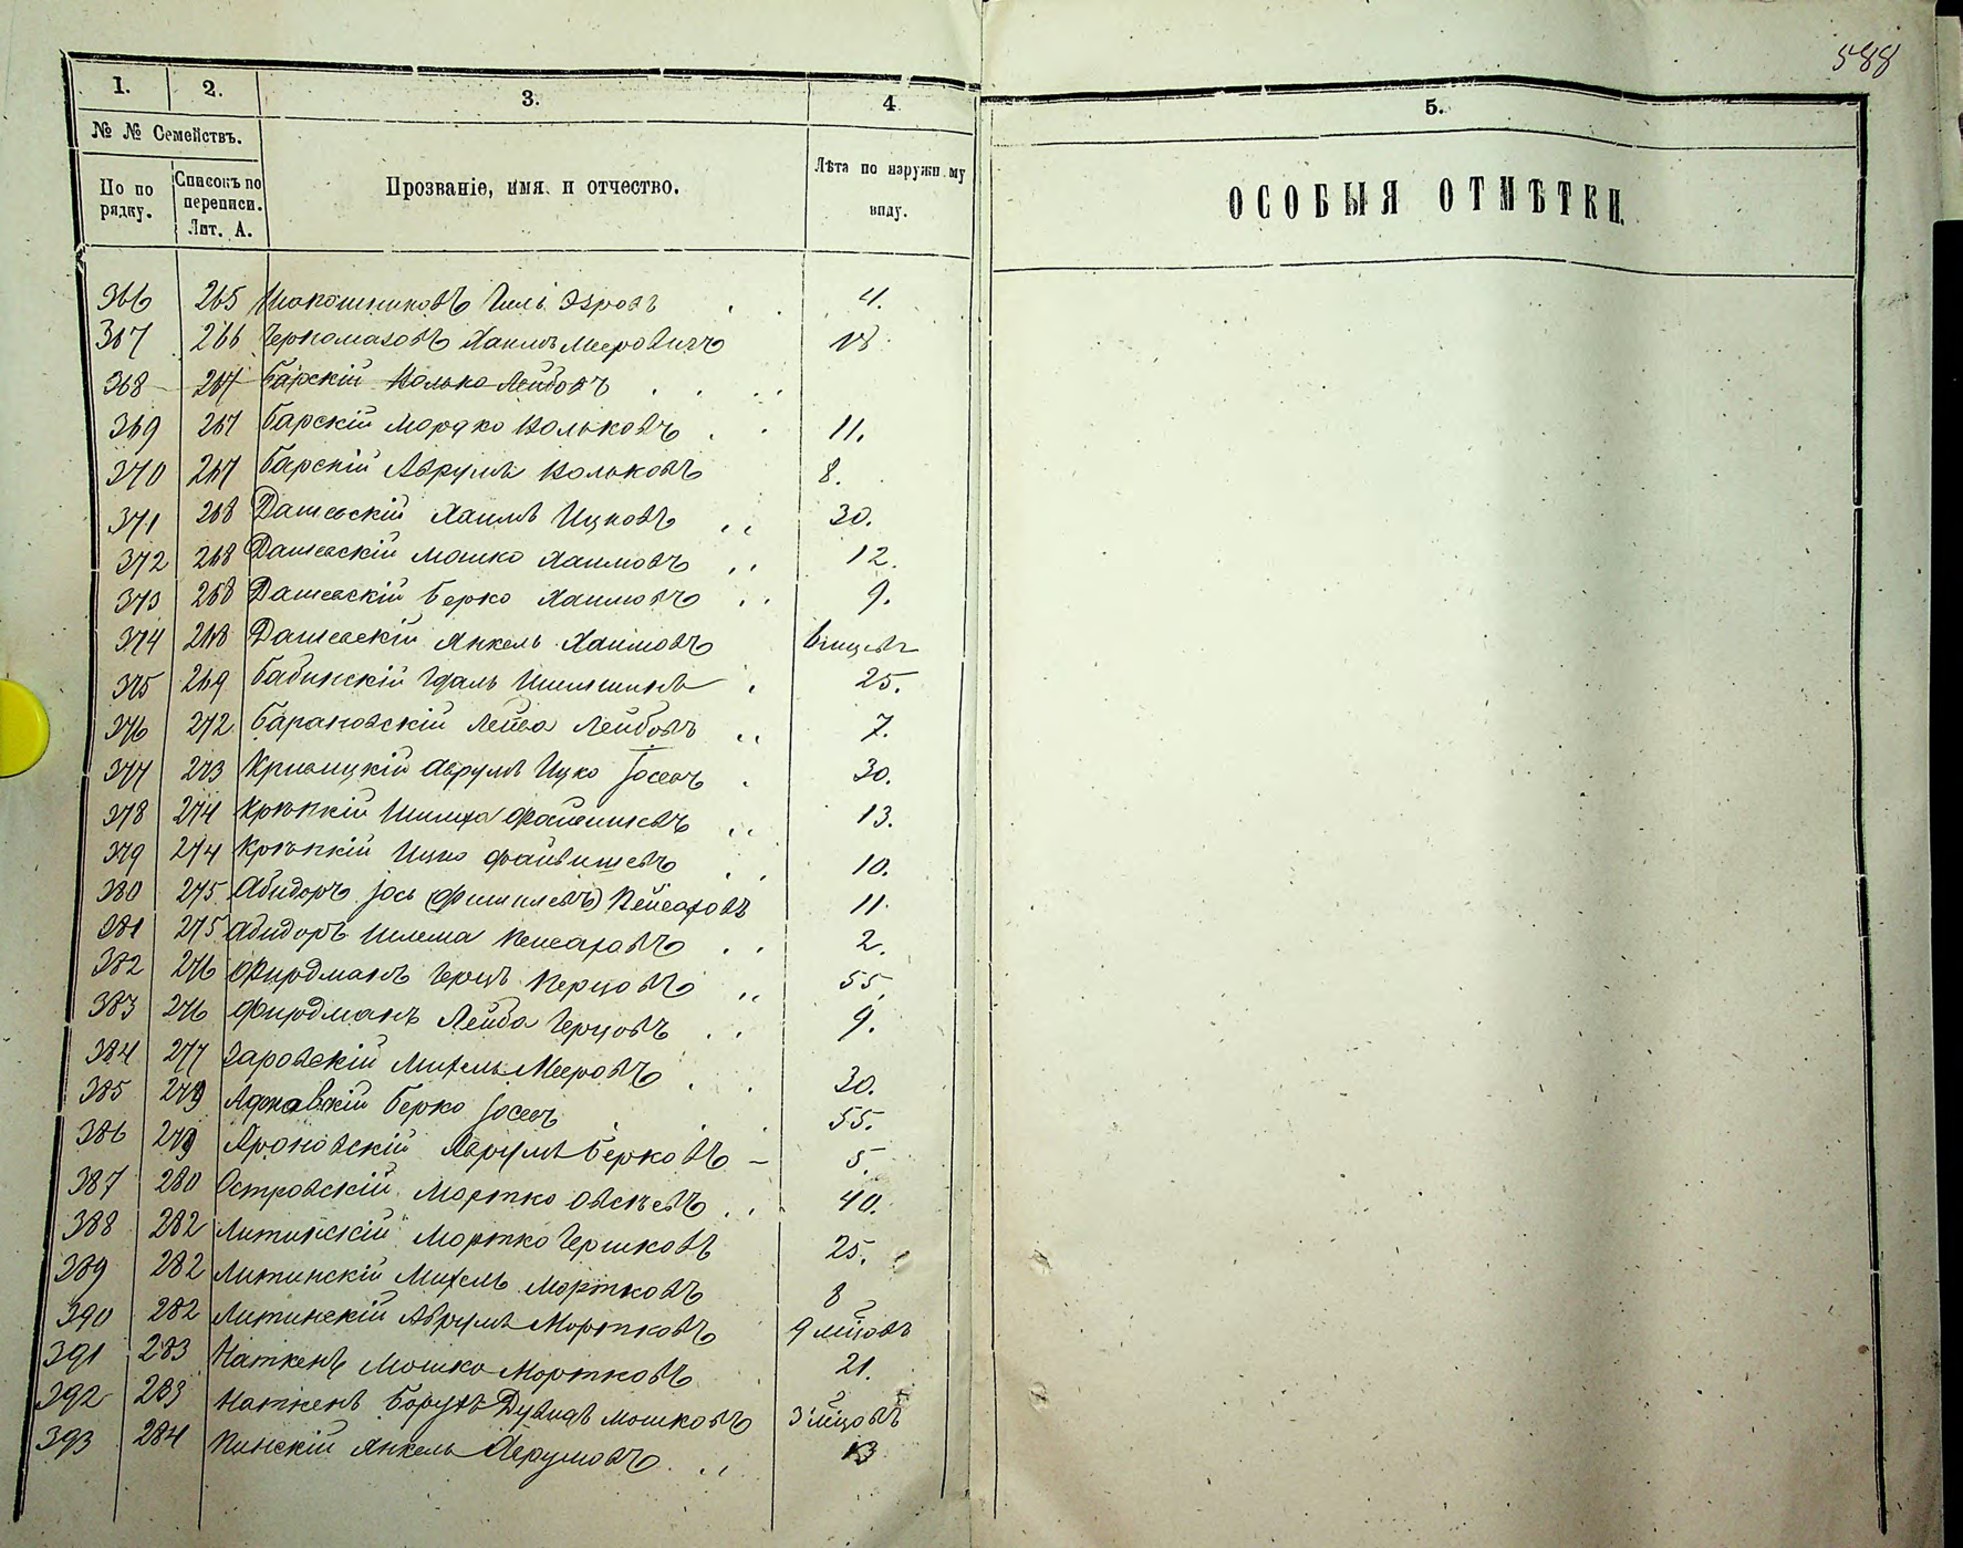 588
1. 2. 3. 4 5.
№ № Семействъ.
По по рядку. Списокъ по переписи. Лит. А. Прозваніе, имя и отчество. Лѣта по наружн му виду. ОСОБЫЯ ОТМѢТКИ.
366 265 4.
367 266 Черномазовъ Хаимъ Мееровичъ 18
368 267 Барскій Волько Лейбовъ
369 267 Барскій Мордко Вольковъ 11.
370 267 Барскій Аврумъ Вольковъ 8.
371 268 Дашевскій Хаимъ Ицковъ 30.
372 268 Дашевскій Мошко Хаимовъ 12.
373 268 Дашевскій Берко Хаимовъ 9.
374 268 Дашевскій Янкель Хаимовъ
375 269 Бабинскій Гдаль 25.
376 272 Барановскій Лейба Лейбовъ 7.
377 273 Аврумъ Ицко Іосевъ 30.
378 274 Крѣпкій Шимха Файвишевъ 13.
379 274 Крѣпкій Ицко Файвишевъ 10.
380 275 Абидоръ Іось Пейсаховъ 11.
381 275 Абидоръ Шлема Пейсаховъ 2.
382 276 Фирдманъ Герцъ Перцовъ 55.
383 276 Фирдманъ Лейба Герцовъ 9.
384 277 Михель Мееровъ 30.
385 279 Берко Іосевъ 55.
386 279 Ароновскій Аврумъ Берковъ 5.
387 280 Островскій Мортко Овсѣевъ 40.
388 282 Литинскій Мортко Гершковъ 25.
389 282 Литинскій Михель Мортковъ 8
390 282 Литинскій Аврумъ Мортковъ 9
391 283 Наткенъ Мошко Мортковъ 21.
392 283 Наткенъ Борухъ Дувидъ Мошковъ 3
393 284 Пинскій Янкель Аврумовъ 13